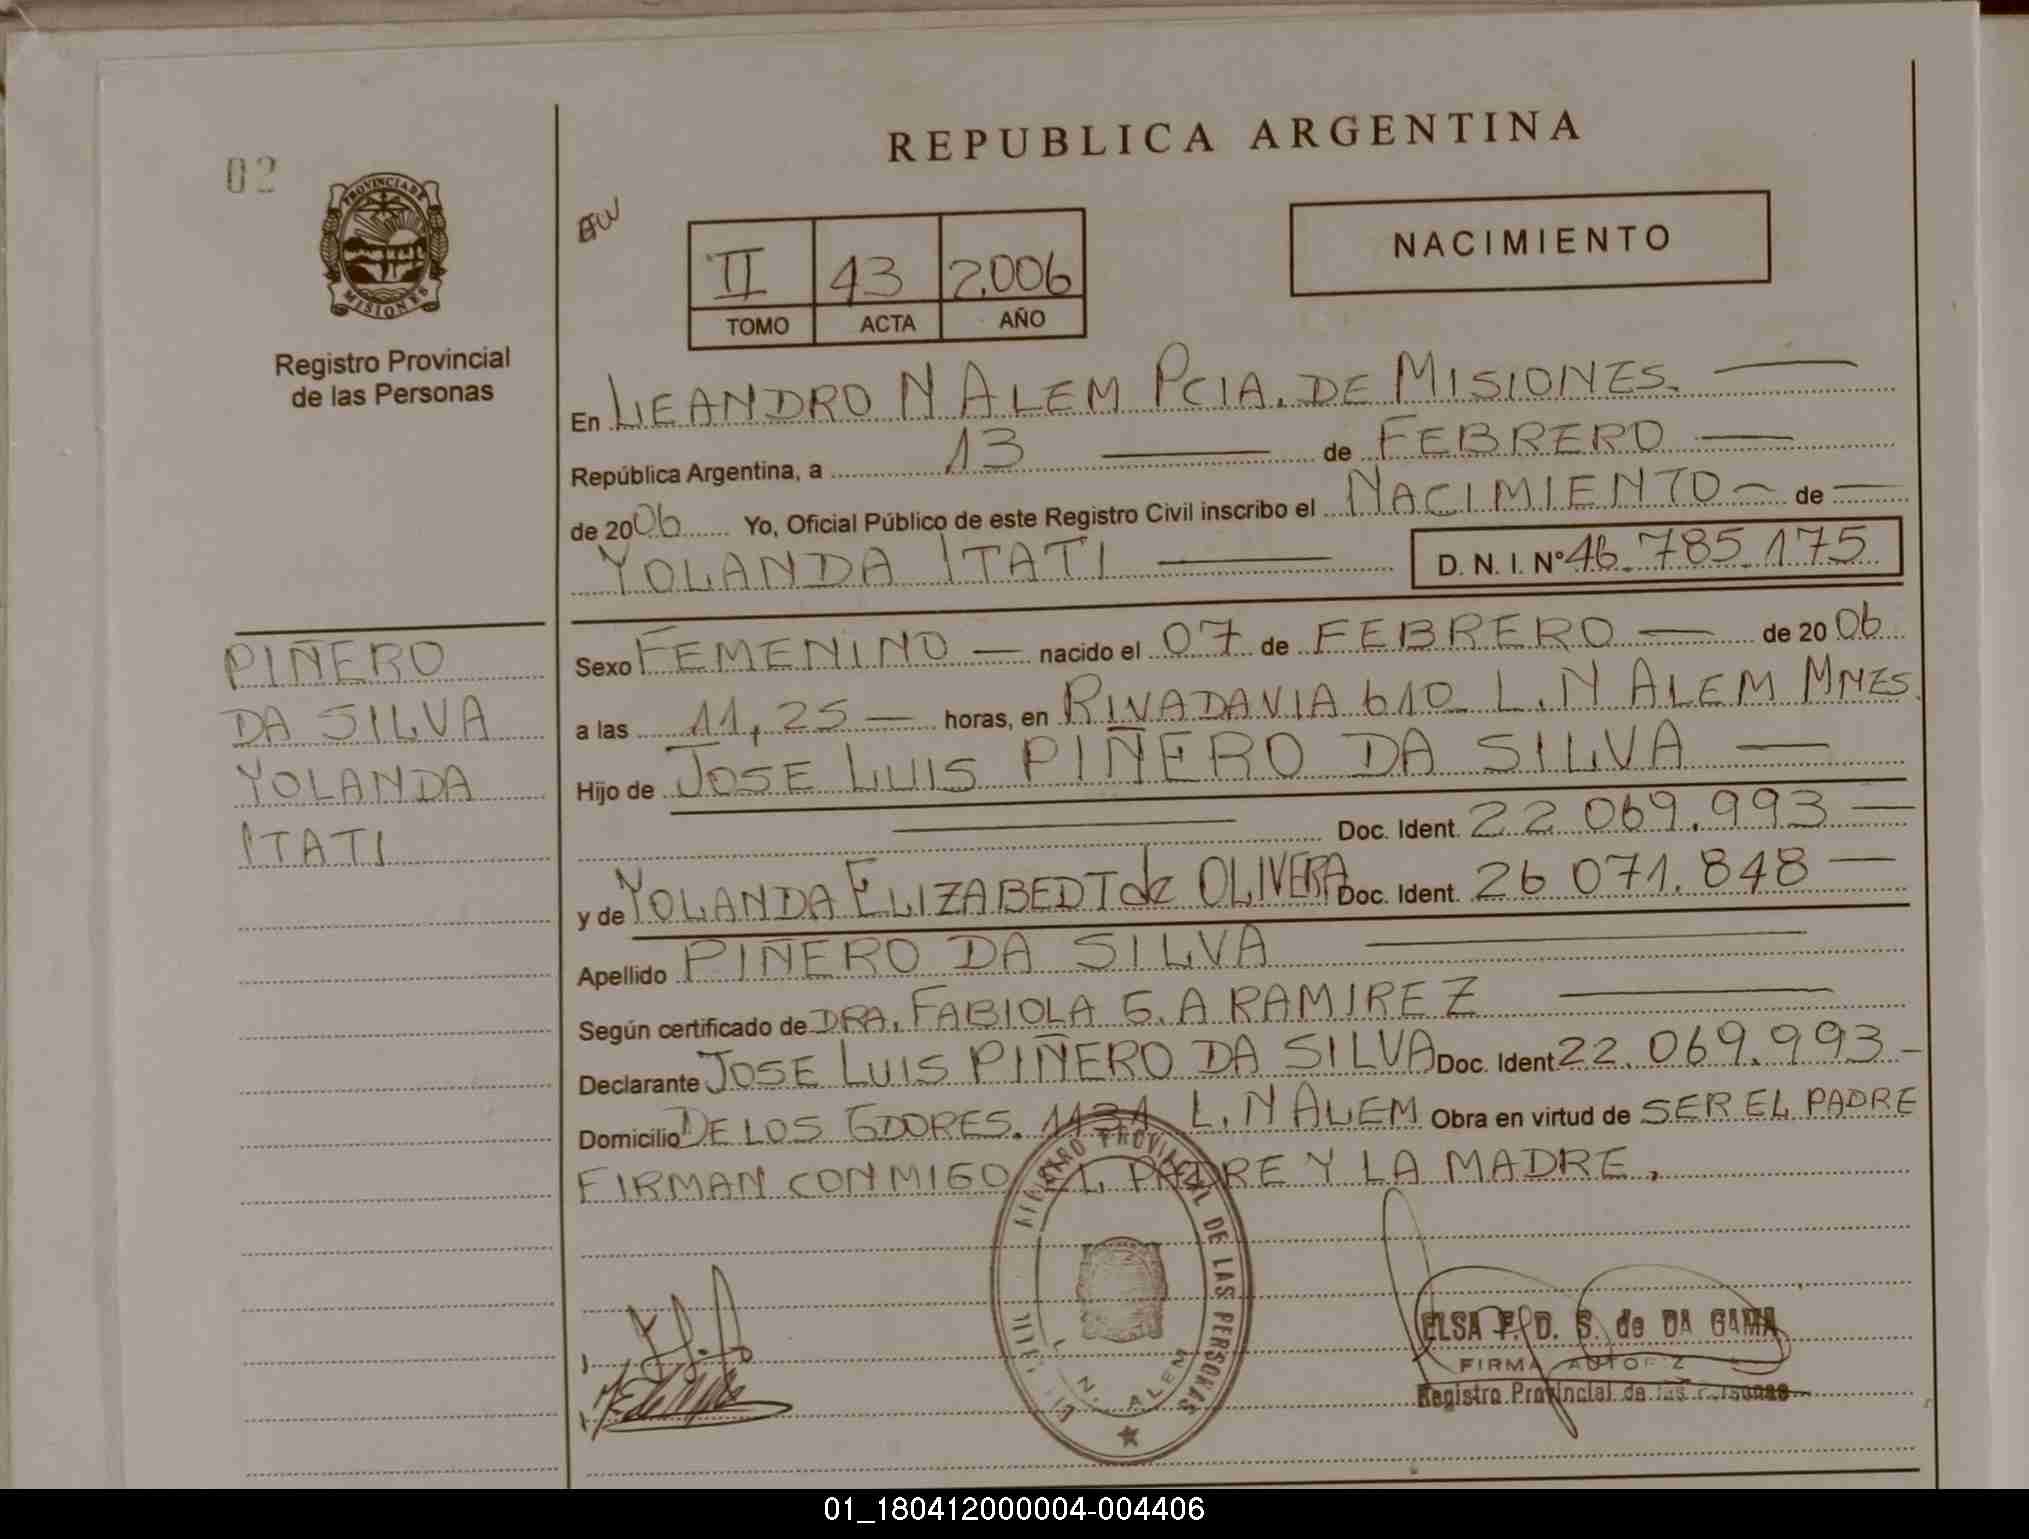 02
PROVINCIA DE
MISIONES
Registro Provincial
de las Personas
PIÑERO
DA SILVA
YOLANDA
ITATI
REPUBLICA ARGENTINA
II 43 2.006
TOMO ACTA AÑO
NACIMIENTO
En LEANDRO N ALEM PCIA. DE MISIONES.
República Argentina, a 13 de FEBRERO
de 2006 Yo, Oficial Público de este Registro Civil inscribo el NACIMIENTO de
YOLANDA ITATI D. N. I. N° 46.785.175
Sexo FEMENINO nacido el 07 de FEBRERO de 2006
a las 11,25 horas, en RIVADAVIA 610 L.N ALEM MNES.
Hijo de JOSE LUIS PIÑERO DA SILVA
Doc. Ident. 22 069.993
y de YOLANDA ELIZABEDT de OLIVERA Doc. Ident. 26 071.848
Apellido PIÑERO DA SILVA
Según certificado de DRA. FABIOLA G. A RAMIREZ
Declarante JOSE LUIS PIÑERO DA SILVA Doc. Ident 22.069.993
Domicilio DE LOS GDORES. 1131 L.N ALEM Obra en virtud de SER EL PADRE
FIRMAN CONMIGO EL PADRE Y LA MADRE.
REGISTRO PROVINCIAL DE LAS PERSONAS
L. N. ALEM
ELSA F. D. S. de DA GAMA
FIRMA AUTORIZ
Registro Provincial de las Personas
01_180412000004-004406